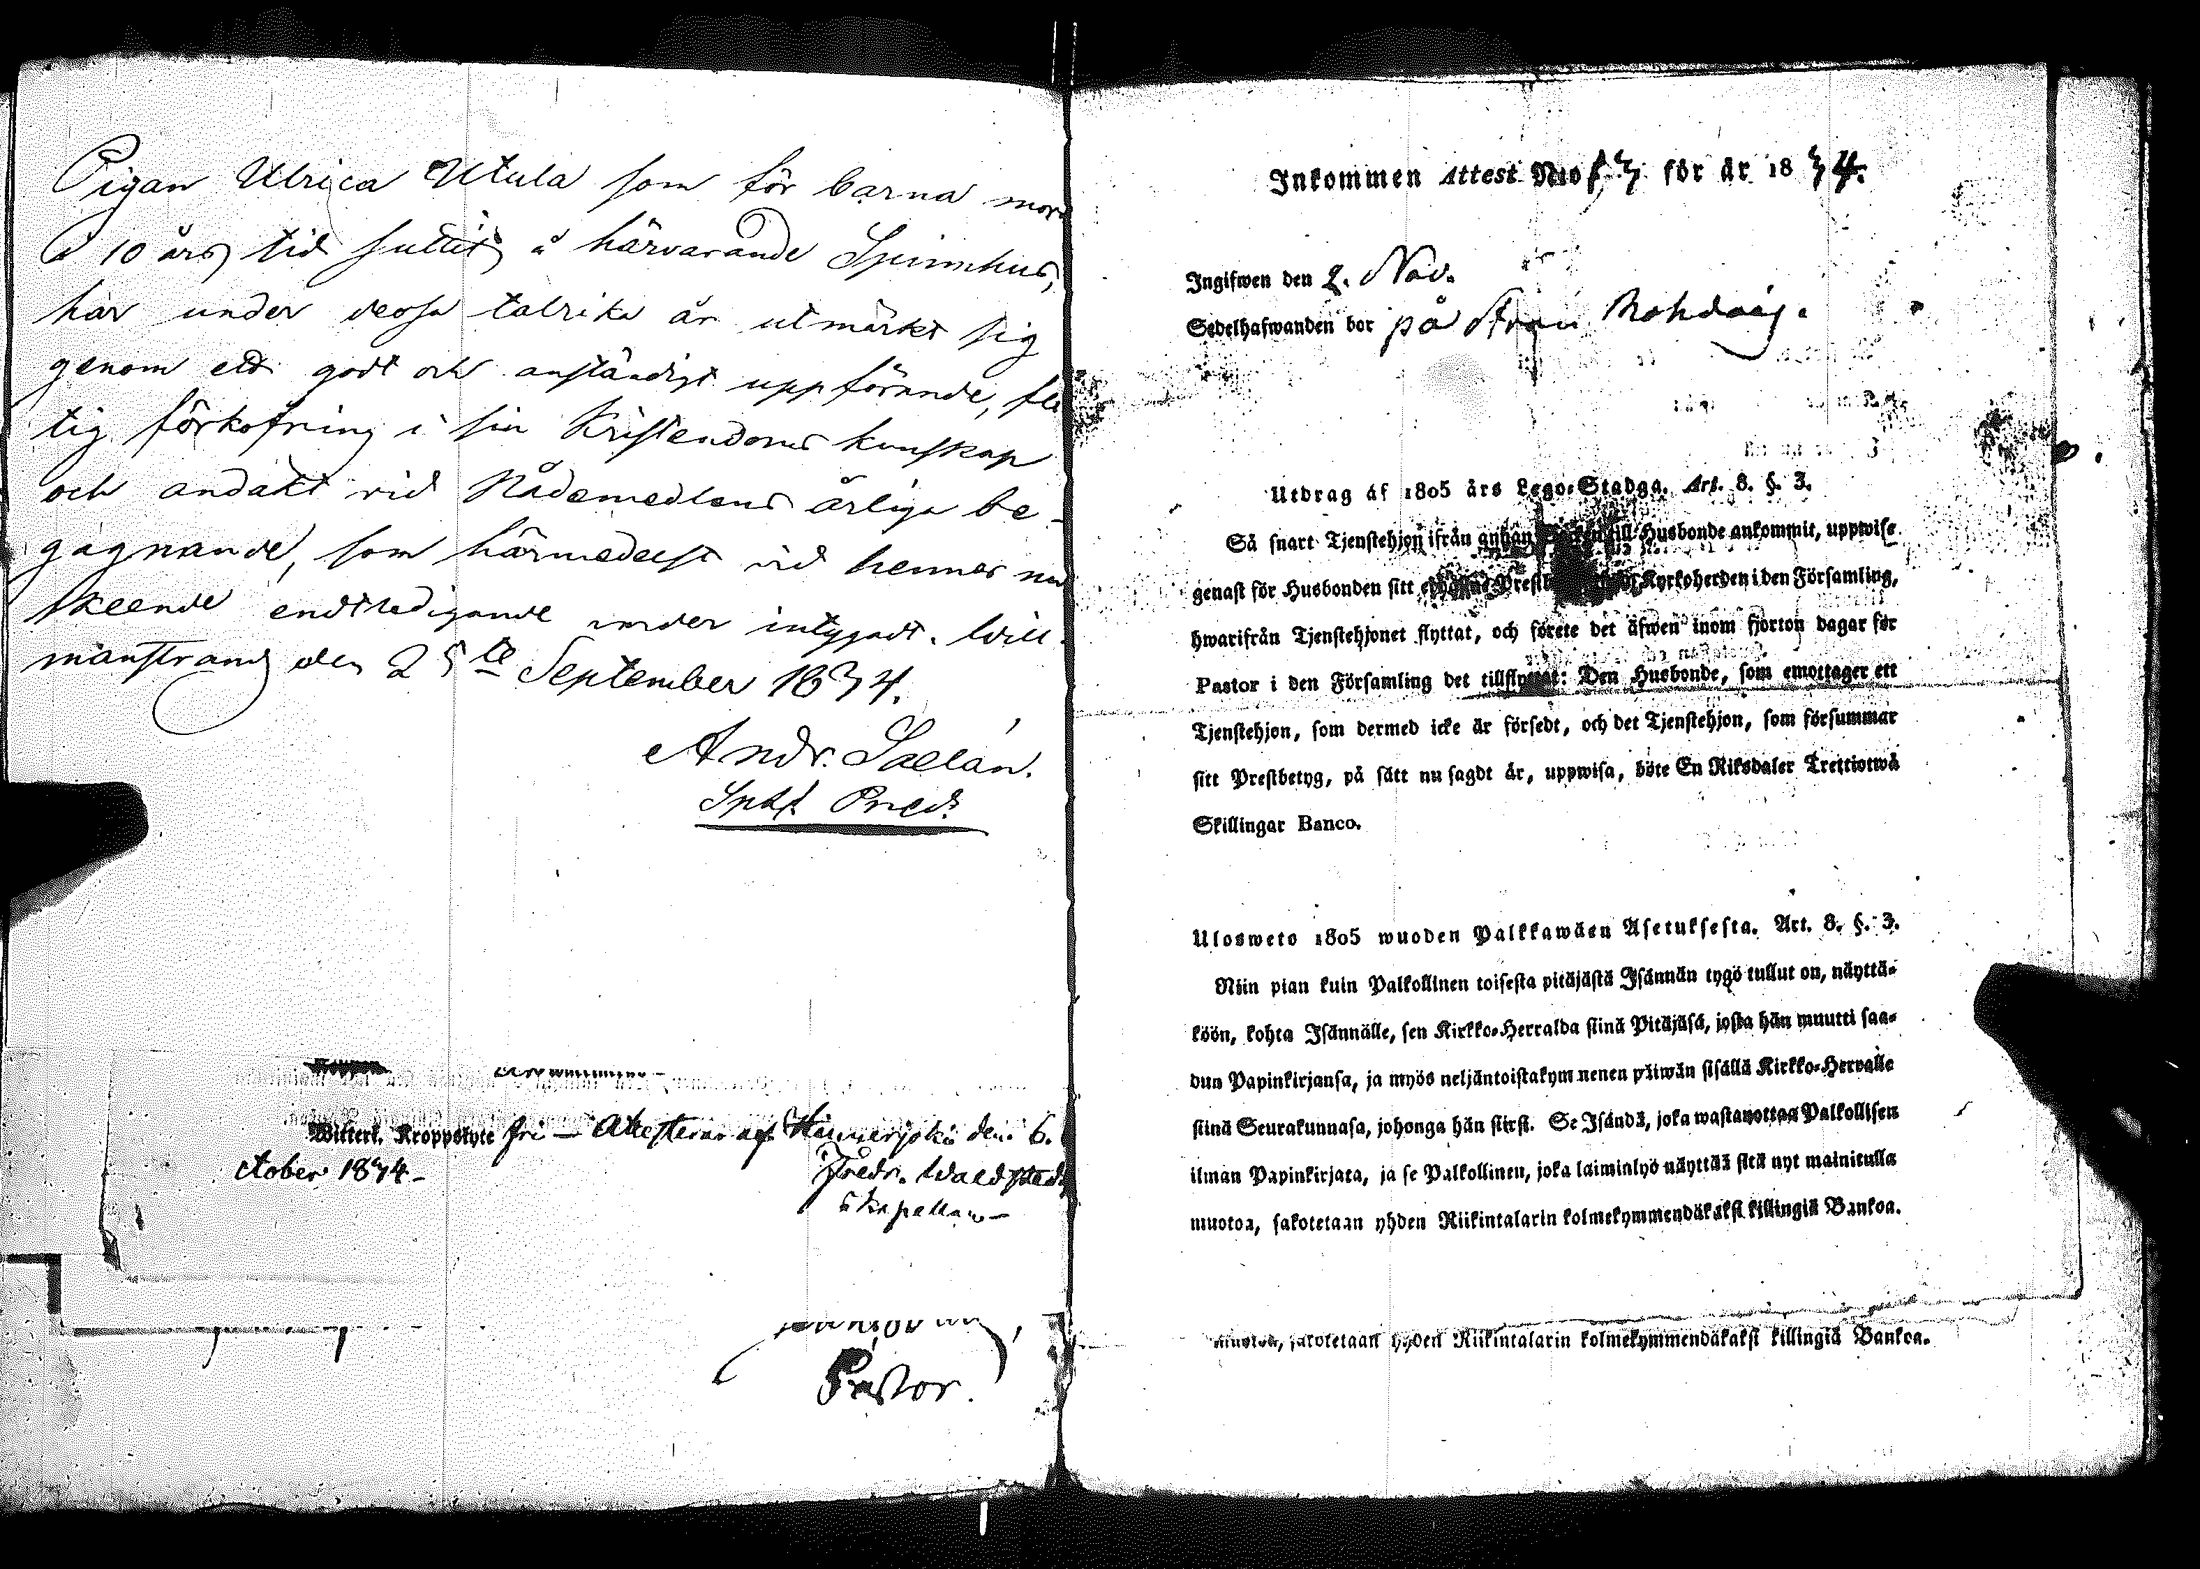 Pigan Ulrica Utula som för barna mord
i 10 års tid suttit å härvarande Spinnhus,
har under dessa talrika år utmärkt sig
genom ett godt och anständigt uppförande, fli
tig förkofring i sin Kristendoms kunskap
och andakt vid Nådemedlens årliga be-
gagnande, som härmedelst vid hennes nu
skeende endtledigande varder intygadt. Will-
manstrand den 25te September 1834.
Andr. Saelan.
Sphs Pred.
Witterl. Kroppslyte fri — Attesterar af Hinnerjoki den 6.
ctober 1834.-
Fredr. Waldstedt
Kapellan-
Pastor.
Inkommen Attest N:o 13 för år 1834.
Ingifwen den 2. Nov.
Sedelhafwanden bor på
Utdrag af 1805 års Lego-Stadga. Art. 8. §. 3.
Så snart Tjenstehjon ifrån annan Socken till Husbonde ankommit, uppwise
genast för Husbonden sitt Kyrkoherden i den Församling,
hwarifrån Tjenstehjonet flyttat, och förete det äfwen inom fjorton dagar för
Pastor i den Församling det tillflyttat: Den Husbonde, som emottager ett
Tjenstehjon, som dermed icke är försedt, och det Tjenstehjon, som försummar
sitt Prestbetyg, på sätt nu sagdt är, uppwisa, böte En Riksdaler Trettiotwå
Skillingar Banco.
Ulosweto 1805 wuoden Palkkawäen Asetuksesta. Art. 8. §. 3.
Niin pian kuin Palkollinen toisesta pitäjästä Isännän tygö tullut on, näyttä-
köön, kohta Isännälle, sen Kirkko-Herralda siinä Pitäjäsä, josta hän muutti saa-
dun Papinkirjansa, ja myös neljäntoistakymmenen päiwän sisällä Kirkko-Herralle
siinä Seurakunnasa, johonga hän siirsi. Se Isändä, joka wastanottaa Palkollisen
ilman Papinkirjata, ja se Palkollinen, joka laiminlyö näyttää sitä nyt mainitulla
muotoa, sakotetaan yhden Riikintalarin kolmekymmendäkaksi killingiä Bankoa.
muotoa, sakotetaan yhden Riikintalarin kolmekymmendäkaksi killingiä Bankoa.